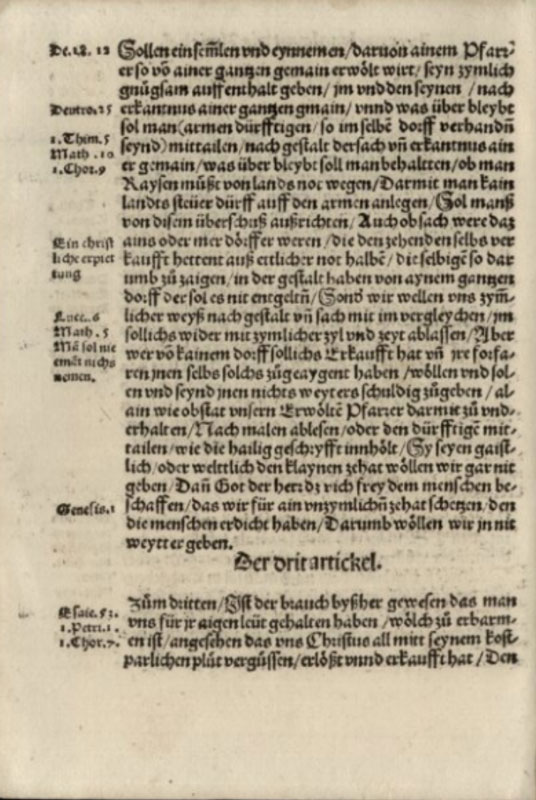 De.18. 12
Deutro.25
1.Thim.5
Math.10
1.Chor.9
Ein christ
liche erpiet
tung
Luce.6
Math.5
Mā sol nie
emāt nichs
nemen.
Genesis.1
Esaie.53.
1.Petri.1.
1.Chor.7.
Sollen einsemlen vnd eynnemen/daruon ainem Pfarr⸗
er so vō ainer gantzen gemain erwölt wirt/seyn zymlich
gnůgsam auffenthalt geben/jm vnd den seynen/nach
erkantnus ainer gantzen gmain/vnnd was über bleybt
sol man (armen dürfftigen/so im selbē dorff verhandñ
seynd) mittailen/nach gestalt der sach vñ erkantnus ain
er gemain/was über bleybt soll man behaltten/ob man
Raysen müßt von lands not wegen/Darmit man kain
landts steüer dürff auff den armen anlegen/Sol manß
von disem überschuß außrichten/Auch ob sach were daz
ains oder mer dörffer weren/die den zehenden selbs ver
kaufft hettent auß ettlicher not halbē/die selbige so dar
umb zů zaigen/in der gestalt haben von aynem gantzen
dorff der sol es nit entgeltñ/Sond wir wellen vns zym⸗
licher weyß nach gestalt vñ sach mit im vergleychen/jm
sollichs wider mit zymlicher zyl vnd zeyt ablassen/Aber
wer vō kainem dorff sollichs Erkaufft hat vñ jre forfa⸗
ren jnen selbs solchs zůgeaygent haben/wöllen vnd sol⸗
en vnd seynd jnen nichts weyters schuldig zůgeben/al⸗
ain wie obstat vnsern Erwöltē Pfarrer darmit zů vnd⸗
erhalten/Nach malen ablesen/oder den dürfftigē mit⸗
tailen/wie die hailig geschryfft innhölt/Sy seyen gaist⸗
lich/oder welttlich den klaynen zehat wöllen wir gar nit
geben/Dañ Got der herr dz vich frey dem menschen be⸗
schaffen/das wir für ain vnzymlichñ zehat schetzen/den
die menschen erdicht haben/Darumb wöllen wir jn nit
weytter geben.
Der drit artickel.
Zům dritten/Ist der brauch byßher gewesen das man
vns für jr aigen leüt gehalten haben/wölch zů erbarm⸗
en ist/angesehen das vns Christus all mitt seynem kost⸗
parlichen plůt vergüssen/erlößt vnnd erkaufft hat/Den